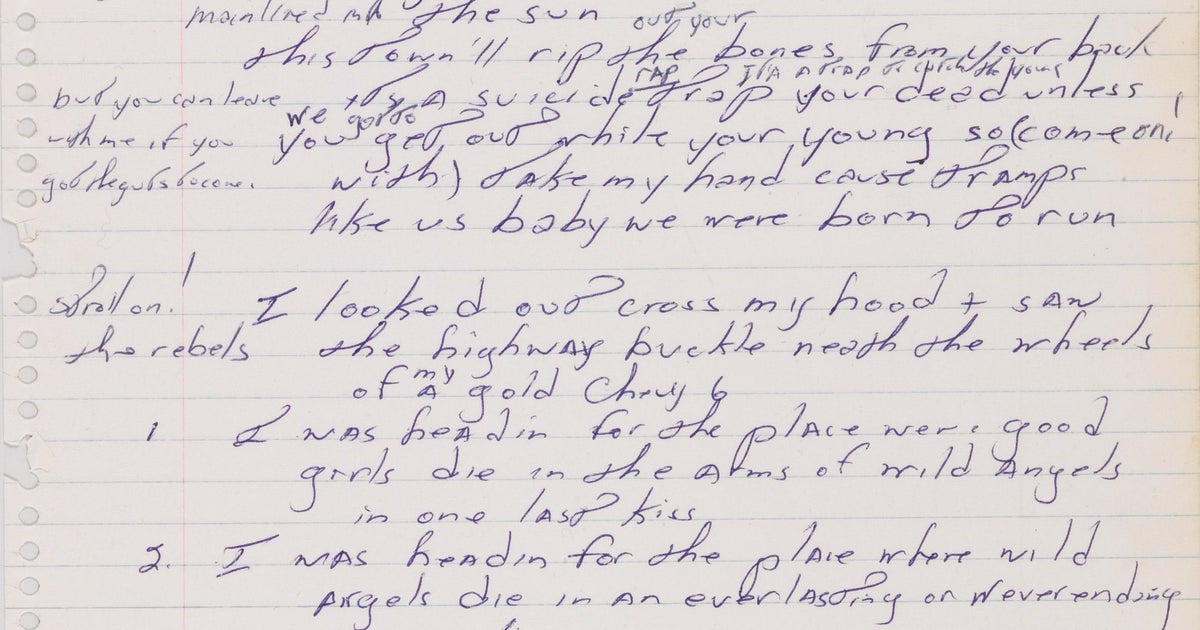 mainlined in the sun
out your
this town'll rip the bones from your back
rap it's a trap to catch the young
but you can leave it's a suicide trap your dead unless
we gotto
with me if you you get out while your young so (come on!
got the guts to come. with) take my hand cause tramps
like us baby we were born to run
stroll on! I looked out cross my hood + saw
the rebels the highway buckle neath the wheels
my
of a gold Chevy 6
1 I was headin for the place were good
girls die in the arms of wild Angels
in one last kiss
2. I was headin for the place where wild
Angels die in an everlasting or Neverending